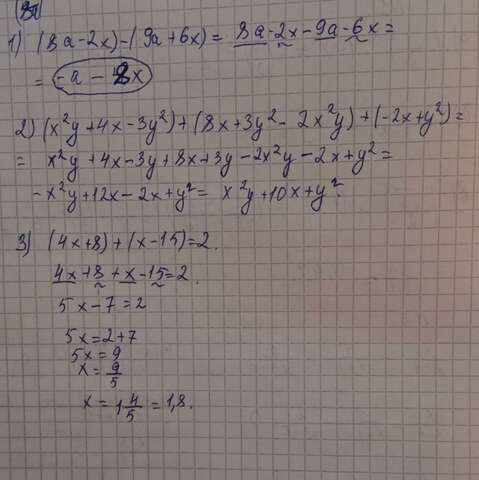 1) (8a-2x)-(9a+6x) = 8a-2x-9a-6x =
= -a - 8x
2) (x²y+4x-3y²)+(8x+3y²-2x²y)+(-2x+y²) =
= x²y+4x-3y+8x+3y-2x²y-2x+y² =
-x²y+12x-2x+y² = x²y+10x+y².
3) (4x+8)+(x-15)=2.
4x+8+x-15=2.
5x-7=2
5x=2+7
5x=9
x=9/5
x=1 4/5=1,8.